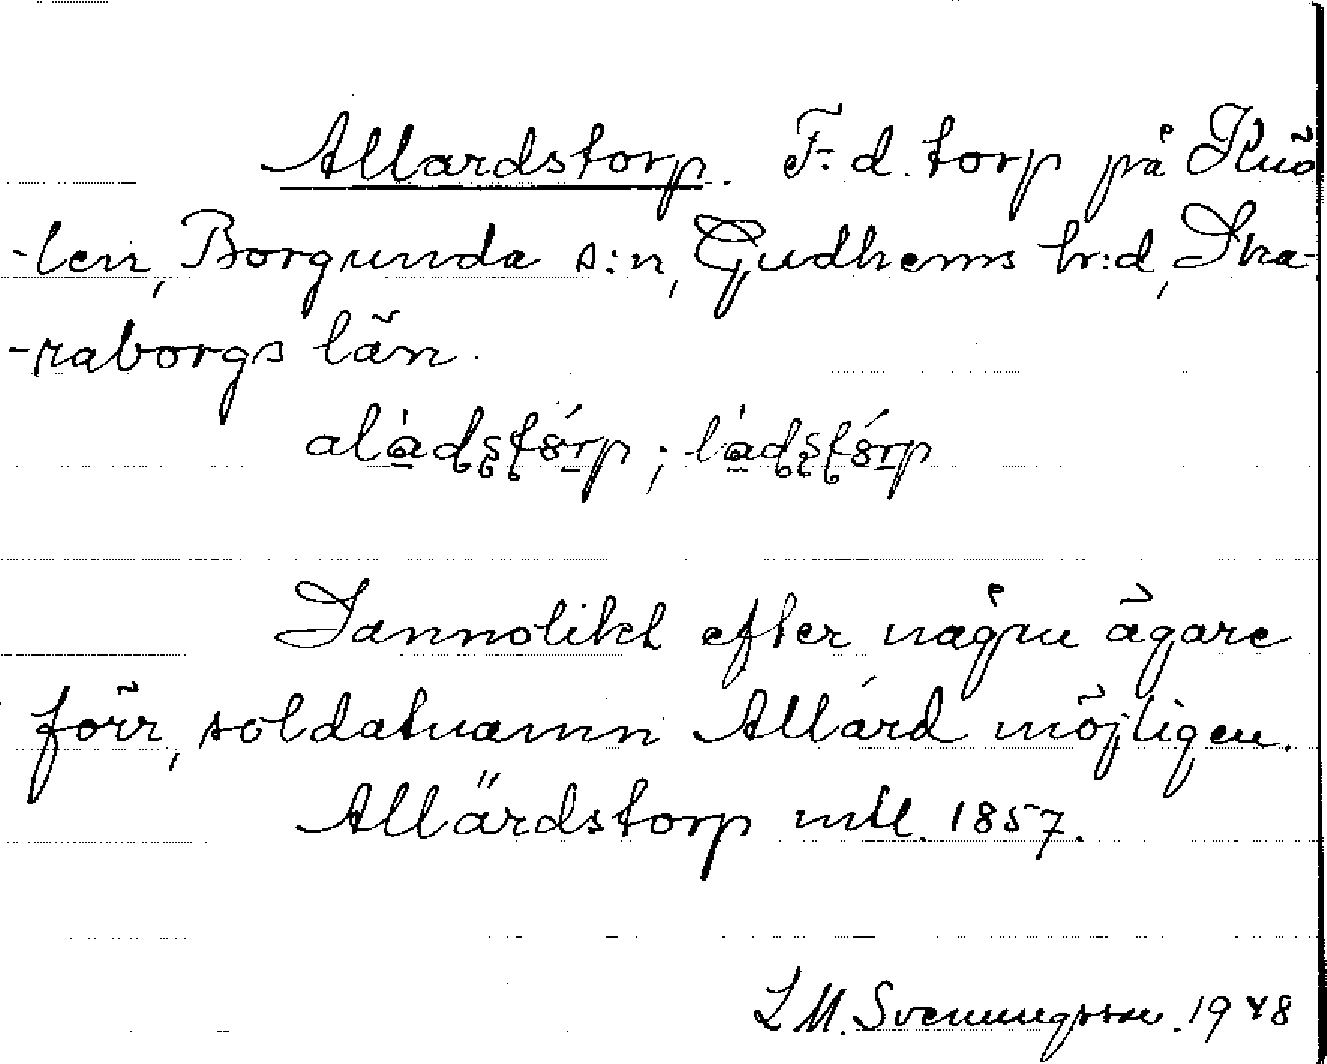 Allardstorp. F. d. torp på Klyf-
-len, Borgunda s:n, Gudhems hr:d, Ska-
-raborgs län.
Sannolikt efter någon ägare
förr, soldatnamn Allard möjligen.
Allärdstorp mtl. 1857.
L M. Svenungsson. 1948